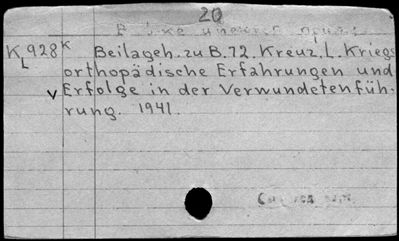 20
K 928 K Beilageh. zu B. 72. Kreuz, L. Kriegs
L orthopädische Erfahrungen und
v Erfolge in der Verwundetenfüh-
rung. 1941.